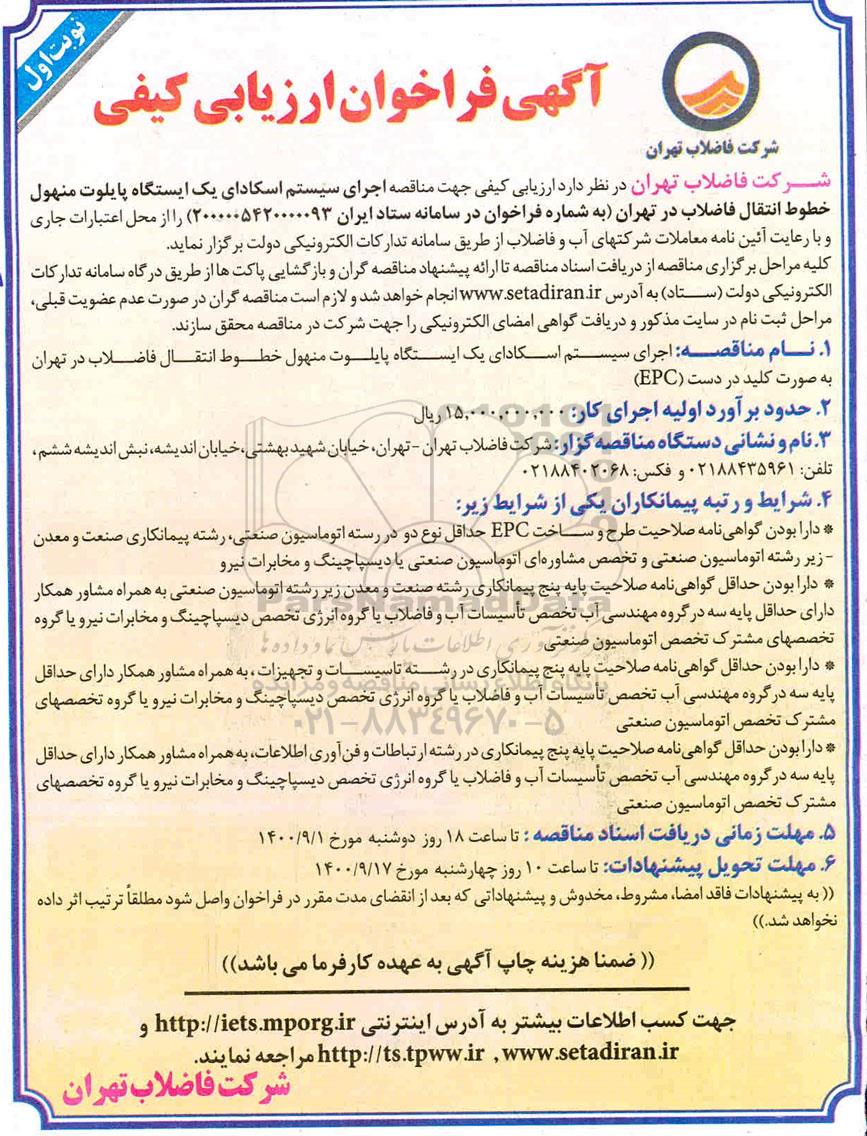 نوبت اول
آگهی فراخوان ارزیابی کیفی
شرکت فاضلاب تهران
شرکت فاضلاب تهران در نظر دارد ارزیابی کیفی جهت مناقصه اجرای سیستم اسکادای یک ایستگاه پایلوت منهول
خطوط انتقال فاضلاب در تهران (به شماره فراخوان در سامانه ستاد ایران ۲۰۰۰۰۰۵۴۲۰۰۰۰۰۹۳) را از محل اعتبارات جاری
و با رعایت آئین نامه معاملات شرکتهای آب و فاضلاب از طریق سامانه تدارکات الکترونیکی دولت برگزار نماید.
کلیه مراحل برگزاری مناقصه از دریافت اسناد مناقصه تا ارائه پیشنهاد مناقصه گران و بازگشایی پاکت ها از طریق درگاه سامانه تدارکات
الکترونیکی دولت (ستاد) به آدرس www.setadiran.ir انجام خواهد شد و لازم است مناقصه گران در صورت عدم عضویت قبلی،
مراحل ثبت نام در سایت مذکور و دریافت گواهی امضای الکترونیکی را جهت شرکت در مناقصه محقق سازند.
۱. نام مناقصه: اجرای سیستم اسکادای یک ایستگاه پایلوت منهول خطوط انتقال فاضلاب در تهران
به صورت کلید در دست (EPC)
۲. حدود برآورد اولیه اجرای کار: ۱۵,۰۰۰,۰۰۰,۰۰۰ ریال
۳. نام و نشانی دستگاه مناقصه گزار: شرکت فاضلاب تهران - تهران، خیابان شهید بهشتی، خیابان اندیشه، نبش اندیشه ششم،
تلفن: ۰۲۱۸۸۴۳۵۹۶۱ و فکس: ۰۲۱۸۸۴۰۲۰۶۸
۴. شرایط و رتبه پیمانکاران یکی از شرایط زیر:
* دارا بودن گواهی‌نامه صلاحیت طرح و ساخت EPC حداقل نوع دو در رسته اتوماسیون صنعتی، رشته پیمانکاری صنعت و معدن
- زیر رشته اتوماسیون صنعتی و تخصص مشاوره‌ای اتوماسیون صنعتی یا دیسپاچینگ و مخابرات نیرو
* دارا بودن حداقل گواهی‌نامه صلاحیت پایه پنج پیمانکاری رشته صنعت و معدن زیر رشته اتوماسیون صنعتی به همراه مشاور همکار
دارای حداقل پایه سه در گروه مهندسی آب تخصص تأسیسات آب و فاضلاب یا گروه انرژی تخصص دیسپاچینگ و مخابرات نیرو یا گروه
تخصصهای مشترک تخصص اتوماسیون صنعتی
* دارا بودن حداقل گواهی‌نامه صلاحیت پایه پنج پیمانکاری در رشته تاسیسات و تجهیزات، به همراه مشاور همکار دارای حداقل
پایه سه در گروه مهندسی آب تخصص تأسیسات آب و فاضلاب یا گروه انرژی تخصص دیسپاچینگ و مخابرات نیرو یا گروه تخصصهای
مشترک تخصص اتوماسیون صنعتی
* دارا بودن حداقل گواهی‌نامه صلاحیت پایه پنج پیمانکاری در رشته ارتباطات و فن‌آوری اطلاعات، به همراه مشاور همکار دارای حداقل
پایه سه در گروه مهندسی آب تخصص تأسیسات آب و فاضلاب یا گروه انرژی تخصص دیسپاچینگ و مخابرات نیرو یا گروه تخصصهای
مشترک تخصص اتوماسیون صنعتی
۵. مهلت زمانی دریافت اسناد مناقصه: تا ساعت ۱۸ روز دوشنبه مورخ ۱۴۰۰/۹/۱
۶. مهلت تحویل پیشنهادات: تا ساعت ۱۰ روز چهارشنبه مورخ ۱۴۰۰/۹/۱۷
(( به پیشنهادات فاقد امضا، مشروط، مخدوش و پیشنهاداتی که بعد از انقضای مدت مقرر در فراخوان واصل شود مطلقاً ترتیب اثر داده
نخواهد شد.))
(( ضمنا هزینه چاپ آگهی به عهده کارفرما می باشد))
جهت کسب اطلاعات بیشتر به آدرس اینترنتی http://iets.mporg.ir و
http://ts.tpww.ir , www.setadiran.ir مراجعه نمایند.
شرکت فاضلاب تهران
ParsNamadData
پایگاه اطلاع رسانی مناقصه و مزایده
۰۲۱-۸۸۳۴۹۶۷۰-۵